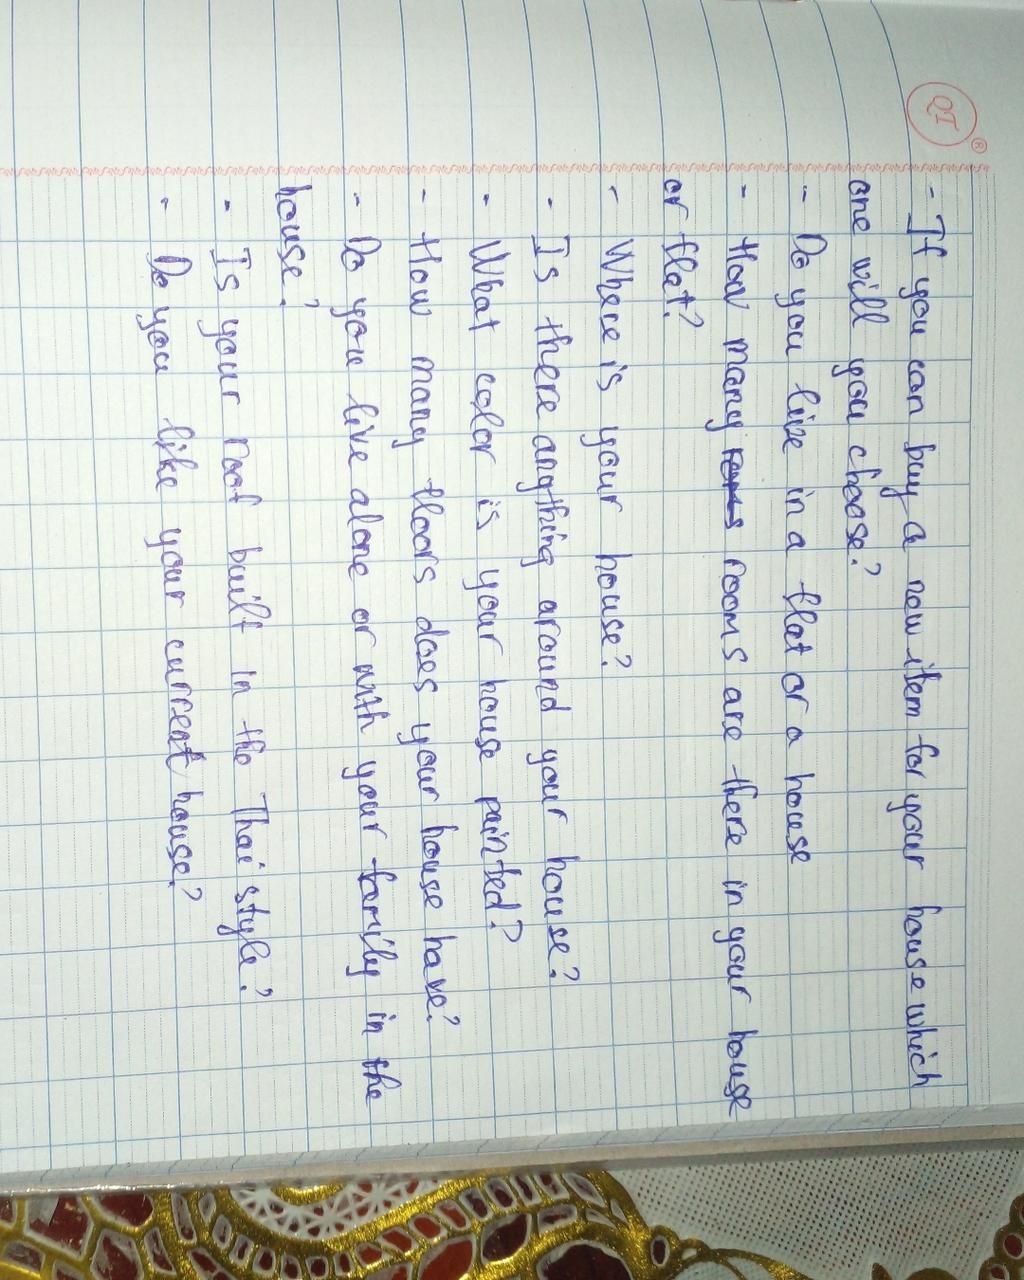 QI ®
- If you can buy a new item for your house which
one will you choose?
- Do you live in a flat or a house
- How many rooms are there in your house
or flat?
- Where is your house?
- Is there anything around your house?
- What color is your house painted?
- How many floors does your house have?
- Do you live alone or with your family in the
house?
- Is your roof built in the Thai style?
- Do you like your current house?